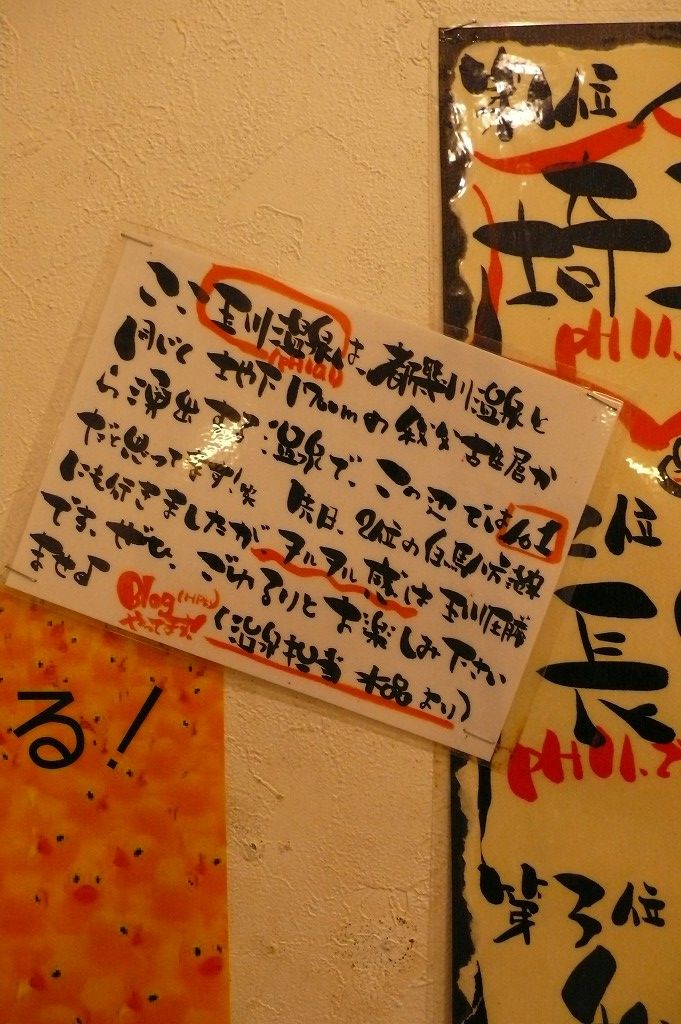 ここ玉川温泉は、都幾川温泉と
(pH10.1)
同じく地下1700mの秩父古生層か
ら湧出する温泉で、この辺ではNo.1
だと思ってます!笑 先日、2位の白馬八方温泉
にも行きましたが、ヌルヌル感は玉川圧勝
です。ぜひ、ごゆるりとお楽しみ下さい
ませ♪
Blog(HP内)
やってます!
(温泉担当 より)
る!
第1位
埼
pH11.
2位
長
pH10.
第3位